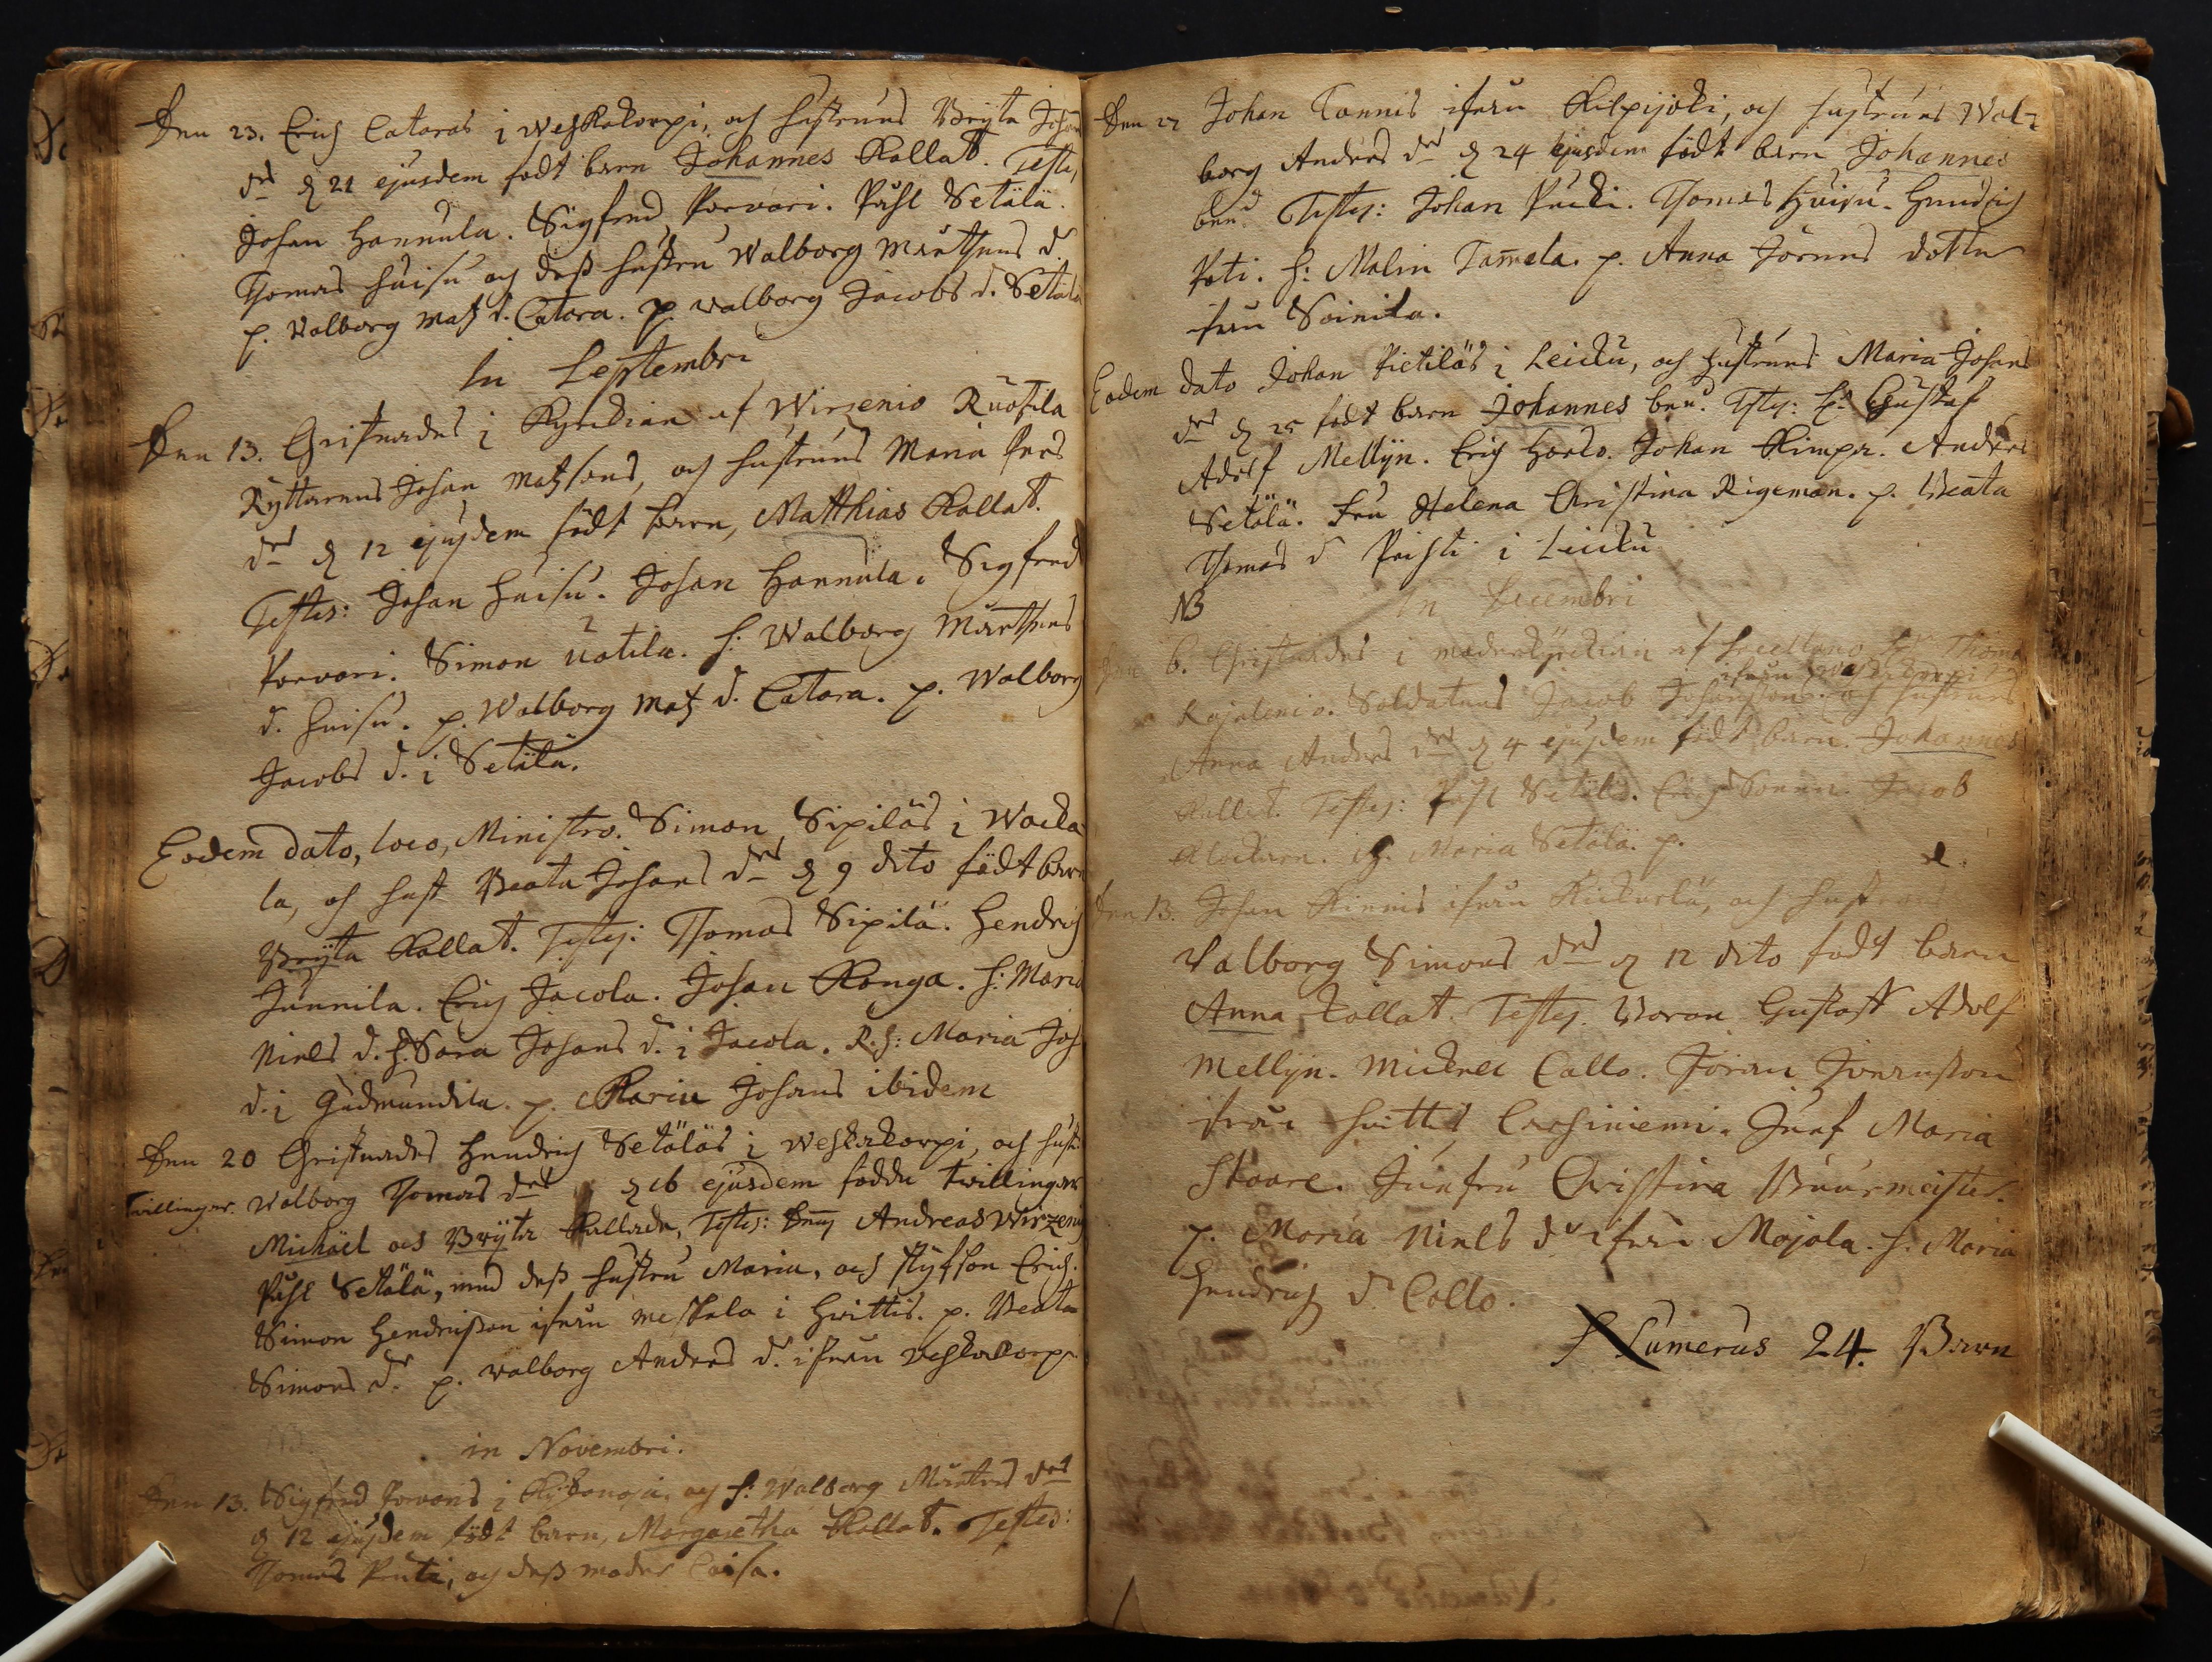 Den 23. Erich Cataras i Weskakorpi, och hustruns Bryta Johans
drs d 21 ejusdem födt barn Johannes Kallat. Testes,
Johan Hannula. Sigfred Porvari. Påhl Setälä.
Thomas Huisu och dess hustru Walborg Mårthens d.
p. Valborg Matz d. Catara. p. Walborg Jacobs d. Setälä
In Septembri
Den 13. Christnades i Kyrckian af Wirzenio Ruohila
Ryttarens Johan Matzsons, och hustruns Maria Pers
drs d 12 ejusdem födt barn, Matthias Kallat.
Testes: Johan Huisu. Johan Hannula. Sigfred
Porvari. Simon Uotila. h: Walborg Mårthens
d. Huisu. p. Walborg Matz d. Catara. p. Walborg
Jacobs d. i Setälä.
Eodem dato, loco, Ministro. Simon Sipiläs i Wacka
la, och hust Beata Johans drs d 9 dito födt barn
Bryta Kallat. Testes: Thomas Sipilä. Hendrich
Junnila. Erich Jacola. Johan Konga. h: Maria
Niels d. h: Sara Johans d. i Jacola. R. h: Maria Joh
d. i Gudmundila. p. Karin Johans ibidem
Den 20 Christnades Hendrich Setäläs i Weskakorpi, och hust:
Twillingar. Walborg Thomas drs d 16 ejusdem födde twillingar
Michäel och Bryta Kallade, Testes: Andreas Wirzenius
Påhl Setälä, med dess hustru Maria, och styfson Erich.
Simon Hendrichson ifrån Meskala i Hvittis. p. Beata
Simons dr p. Walborg Anders d. ifrån Weskakorpi
in Novembri.
Den 13. Sigfred Porvaris i, och h: Walborg Mårtens drs
d 12 ejusdem födt barn, Margaretha Kallat. Testes:
Thomas, och dess moder Caisa.
Den 27 Johan Tannis ifrån Kilpijoki, och hustruns Wal-
borg Anders drs d 24 ejusdem födt barn Johannes
ben. Testes: Johan. Thomas Huisu. Hendrich
Poti. h: Malin Tamela. p. Anna Jörans dotter
ifrån Soinila.
Eodem dato Johan Pietiläs i Leicku, och hustruns Maria Johans
drs d 25 födt barn Johannes ben. Testes: Gustaf
Adolf Mellijn. Erich Horlo. Johan Kimpa. Anders
Setälä. Fru Helena Christina Rigeman. p. Beata
Thomas d i Leicku
NB In Decembri
Den 6. Christnades i moderkyrckian af Thoma
Rajalenio. Soldatens Jacob Johansson och hustruns
ifrån Weskakorpi
Anna Anders drs d 4 ejusdem födt barn Johannes
Kallat. Testes: Påhl Setälä. Erich. Jacob
Klockarn. h. Maria Setälä. p.
Den 13. Johan Kinnis ifrån, och hustruns
Valborg Simons drs d 12 dito födt barn
Anna Kallat. Testes. Baron Gustaff Adolf
Mellijn. Mickell Callo. Jöran
ifrån Hvittis. Junf Maria
Skoare. Junfru Christina Buurmeister.
p. Maria Niels dr ifrån Majala. h: Maria
Hendrich dr Collo.
Numerus 24. Barn